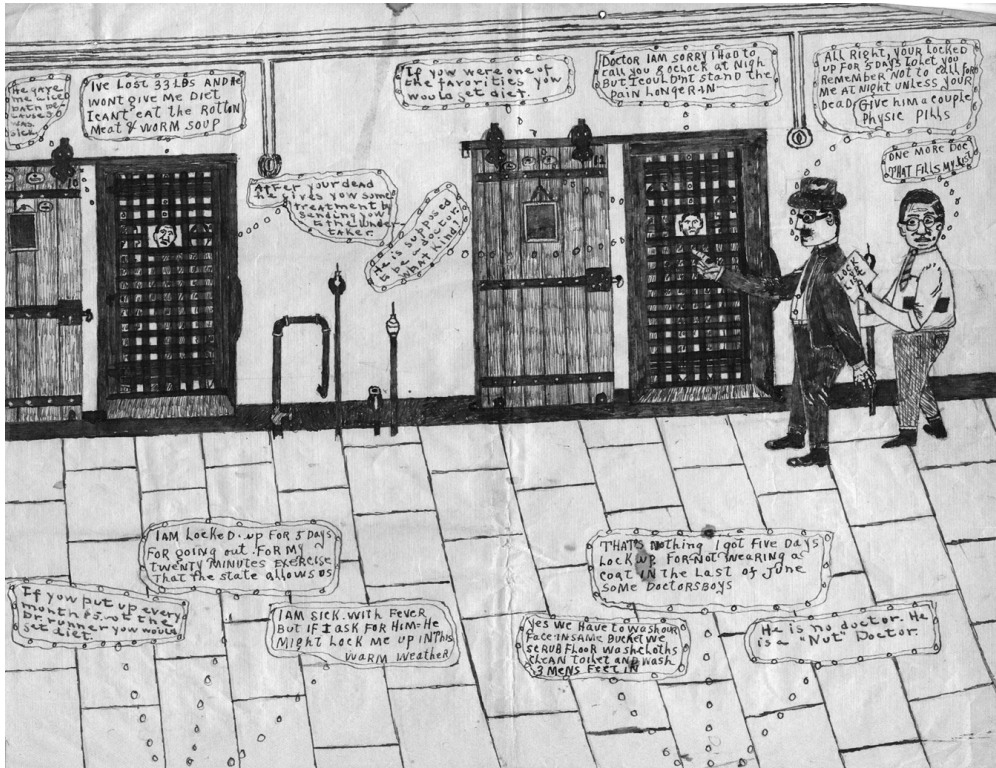 He gave
me a iced
bath be-
cause I
was
sick.
Ive Lost 33 LBS AND HE
WONT GIVE ME DIET
I CANT EAT the ROTTEN
MEAT & WORM SOUP
If you were one of
the favorities you
would get diet.
Doctor I AM SORRY I HAD to
call you 8 oclock at Nigh
But I coulDnt stand the
PAIN LONGER IN
ALL Right, YOUR LOCKED
UP FOR 5 DAYS TO LET YOU
Remember Not to call FOR
ME AT NIGHT UNLESS YOUR
DEAD. Give him a couple
Physic Pills
ONE MORE DOC
THAT FILLS MY LIST
After your dead
he gives you some
treatment by
sending you
to the Under
taker.
He is supposed
to be a doctor.
WHAT Kind.
LOCK
I AM LOCKED-UP FOR 5 DAYS
FOR going out FOR MY
TWENTY MINUTES EXERCISE
THAT the STATE ALLOWS US
If you put up every
month $5. at the
Dr. runner you would
get diet.
I AM SICK WITH FEVER
BUT IF I ASK FOR HIM=HE
MIGHT LOCK ME UP IN THIS
WARM WEATHER
THATS Nothing I got FIVE DAYS
LOCK UP FOR NOT WEARING A
COAT IN the LAST OF JUNE
SOME DOCTORS BOYS
Yes WE HAVE TO WASH OUR
FACE IN SAME BUCKET WE
SCRUB FLOOR WASH CLOTHS
CLEAN TOILET AND WASH
3 MENS FEET IN
He is no doctor. He
is a "Nut" Doctor.